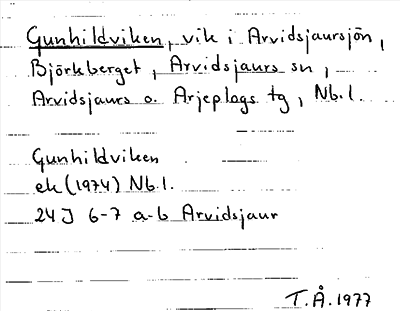 Gunhildviken, vik i Arvidsjaursjön,
Björkberget, Arvidsjaurs sn,
Arvidsjaurs o. Arjeplogs tg, Nb.l.
Gunhildviken
ek (1974) Nb.l.
24J 6-7 a-b Arvidsjaur
T.Å.1977